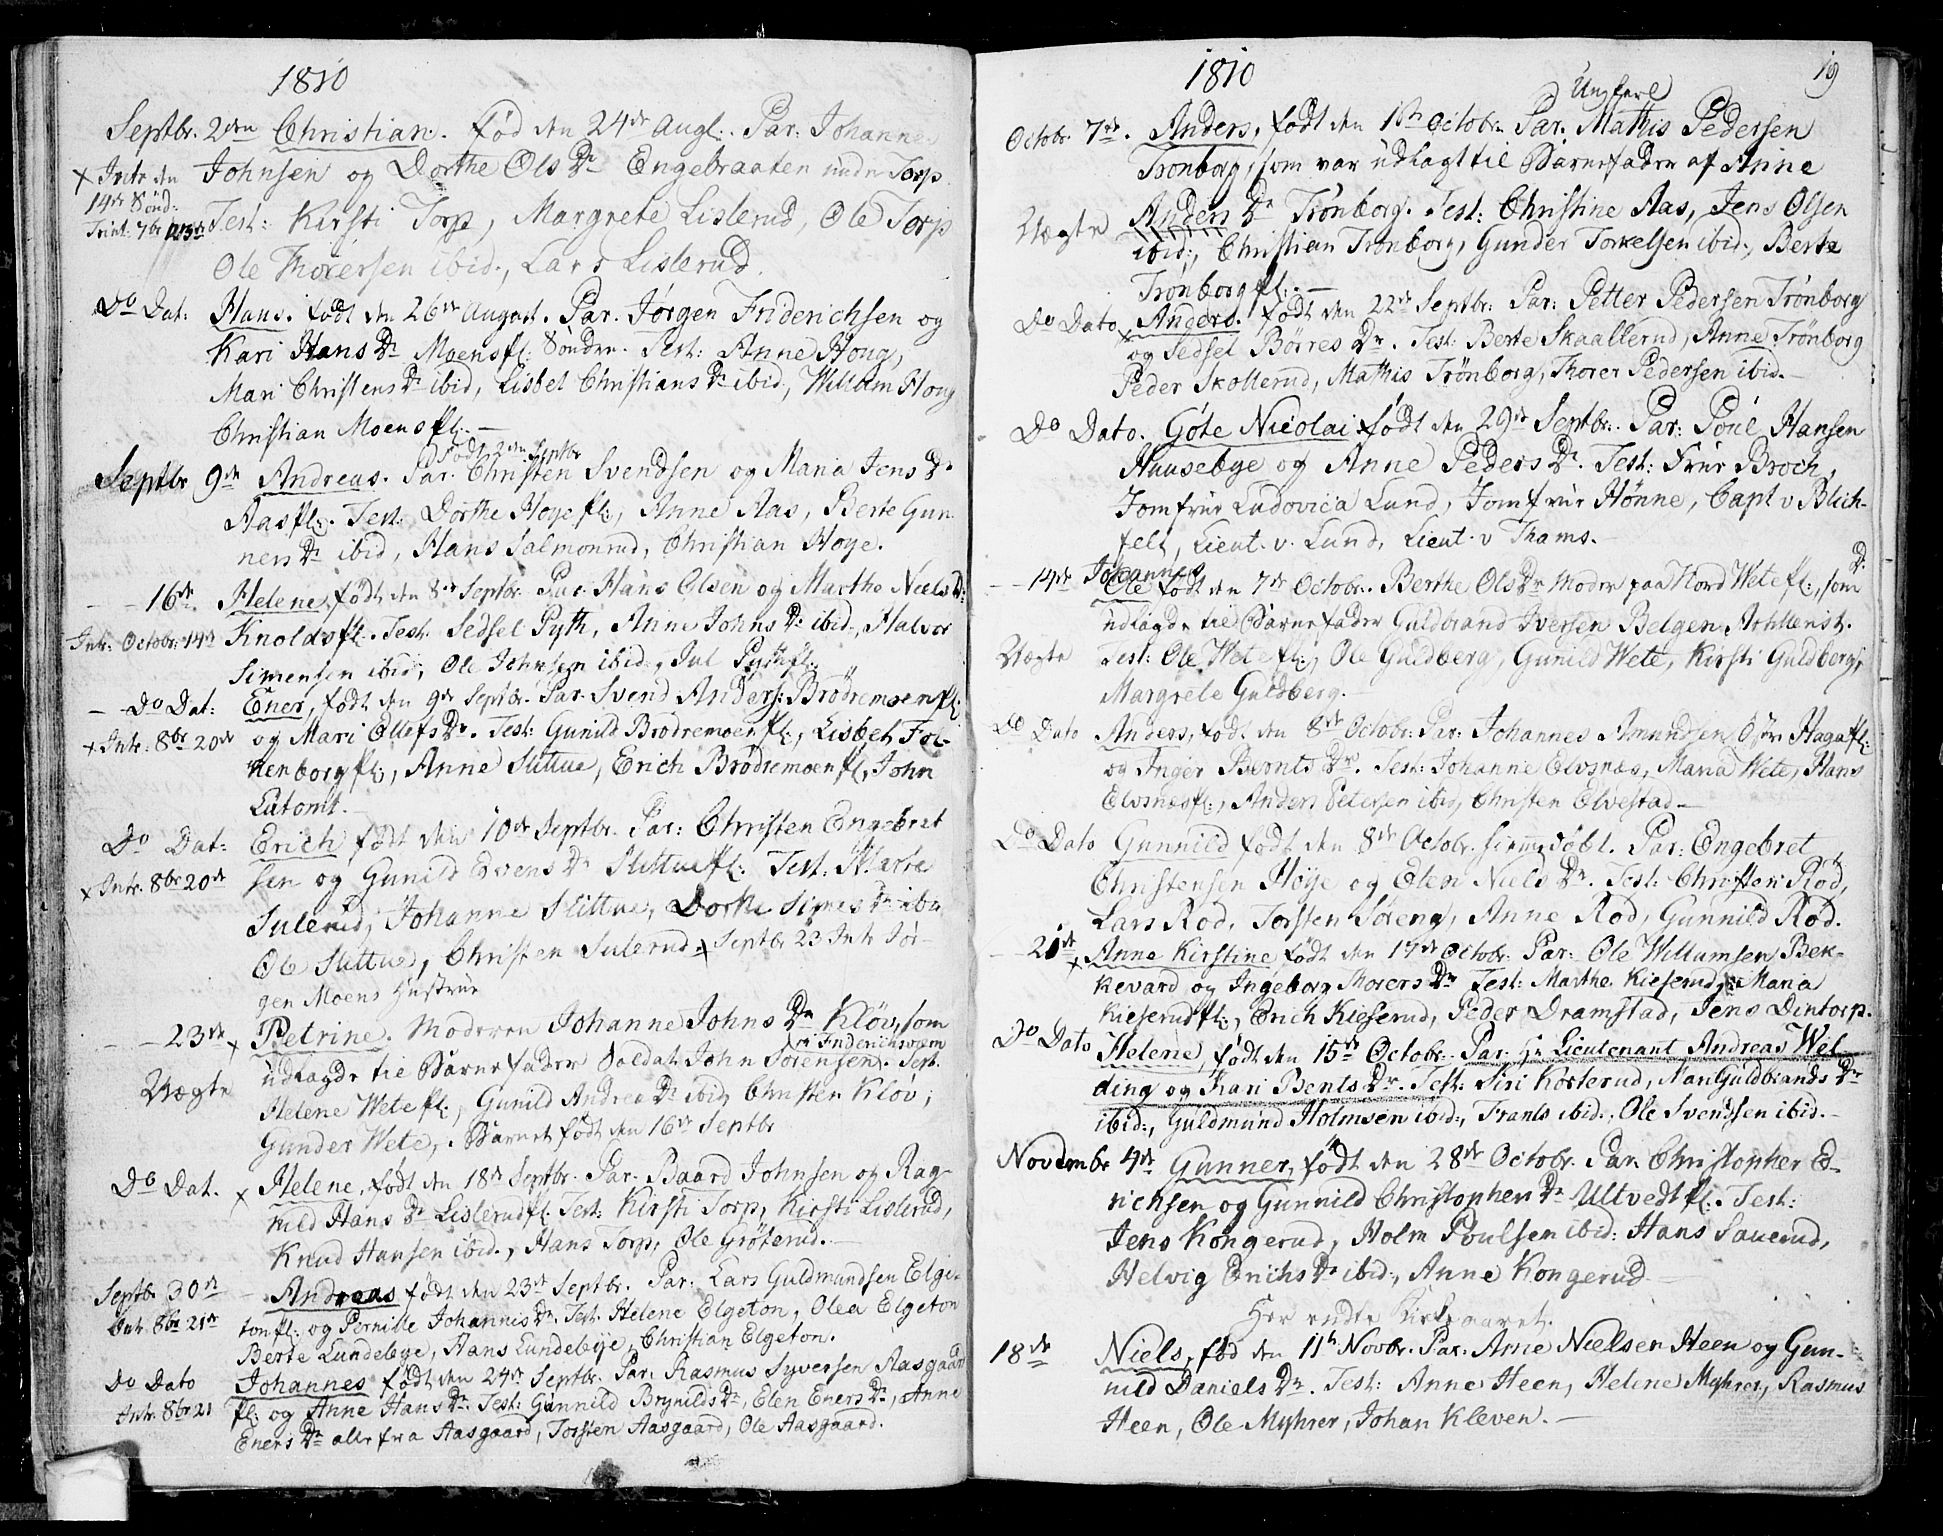 1810
Septbr. 2den Christian. fød den 24de Augt. Par: Johannes
x Intr. den Johnsen og Dorthe Ols Dr Engebraaten under Torp
14de Sönd: Test: Kirsti Torp, Margrete Lislerud, Ole Torp
Trinit: 7br
Ole Thorersen ibid., Lars Lislerud.
Do Dat: Hans. født den 26de August. Par. Jørgen Friderichsen og
Kari Hans Dr Moens fl: Söndre. Test: Anne Houg,
Mari Christens Dr ibid, Lisbet Christians Dr ibid, Willum Houg
Christian Moens fl:. —
født 2den Septbr
Septbr 9de Andreas. Par. Christen Svendsen og Maria Jens Dr
Aas fl:. Test: Dorthe Hoye fl:, Anne Aas, Berte Gun-
ners Dr ibid, Hans Salmonrud, Christian Hoye.
- - 16de. Helene, født den 8de Septbr. Par: Hans Olsen og Marthe Niels Dr:
Intr: Octobr: 14de Knolds fl. Test: Sedsel Pyth, Anne Johns Dr ibid., Halvor
Simensen ibid, Ole Johnsen ibid., Jul Pyth fl:
- - Do Dat: Ener, født den 9de Septbr. Par. Svend Anders: Brødremoen fl:
x Intr: 8br 20de og Mari Ollefs Dr. Test: Gunild Brødremoen fl:, Lisbet Fol-
kenborg fl:, Anne Slittue, Erich Brødremoen fl, John
Latomt. —
Do Dat: Erich født den 10de Septbr. Par: Christen Engebret
x Intr. 8br 20de sen og Gunild Evens Dr Slittue fl:. Test: Marte
Sulerud, Johanne Slittue, Dorthe Simes Dr ibid
Ole Slittue, Christen Sulerud. x Septbr 23 Intr Jør-
gen Moens Hustrue
- - 23de x Petrine. Moderen Johanne Johns Dr Kløv, som
udlagde til Barnefader Soldat John Sørensen. Test.
Friderichsværn
Uægte Helene Wete fl:, Gunild Andrea Dr ibid, Christen Kløv,
Gunder Wete, Barnet født den 16de Septbr
Do Dat. x Helene, født den 18de Septbr. Par. Baard Johnsen og Rag-
nild Hans Dr Lislerud fl: Test: Kirsti Torp, Kirsti Lislerud,
Knud Hansen ibid., Hans Torp, Ole Grøterud. —
Septbr 30te Andreas født den 23de Septbr. Par: Lars Guldmundsen Elge-
Intr. 8br 21de ton fl: og Pernille Johannis Dr. Test. Helene Elgeton, Olea Elgeton
Berte Lundebye, Hans Lundebye, Christian Elgeton.
Do Dato Johannes født den 24de Septbr. Par: Rasmus Syversen Aasgaard
Intr. 8br 21 fl: og Anne Hans Dr. Test: Gunnild Brynilds Dr, Elen Eners Dr, Anne
Eners Dr alle fra Aasgaard, Torsten Aasgaard, Ole Aasgaard.
1810
19
Ungkarl
Octobr. 7de. Anders, født den 1ste Octobr. Par. Mathis Pedersen
Trønborg, som var udlagt til Barnefader af Anne
Uægte Anders Dr Trønborg. Test: Christine Aas, Jens Olsen
ibid:, Christian Trønborg, Gunder Torkelsen ibid:, Berte
Trønborg fl:. —
Do Dato x Anders. født den 22de Septbr: Par: Petter Pedersen Trønborg
og Sedsel Børres Dr. Test: Berte Skaallerud, Anne Trønborg
Peder Skollerud, Mathis Trønborg, Thorer Pedersen ibid. —
Do Dato. Göte Nicolai født den 29de Septbr. Par: Poul Hansen
Huusebye og Anne Peders Dr. Test: Frue Broch,
Jomfrue Ludovica Lund, Jomfrue Hönne, Capt v Blich-
felt, Lieut. v. Lund, Lieut. v Thams. —
- - 14de Johannes Ole født den 7de Octobr. Berthe Ols Dr Moder paa Nord Wete fl:, som
udlagde til Barnefader Guldbrand Iversen Belgen Arttlerist.
Uægte Test: Ole Wete fl:, Ole Guldberg, Gunild Wete, Kirsti Guldberg,
Margrete Guldberg. —
Do Dato Anders, født den 8de Octobr: Par: Johannes Amundsen Østre Haga fl:
og Inger Bernts Dr. Test: Johanne Elvsnæs, Maria Wete, Hans
Elvsnæs fl:, Anders Petersen ibid, Christen Elvestad —
Do Dato Gunnild født den 8de Octobr. hiemmedøbt. Par: Engebret
Christensen Höye og Elen Niels Dr. Test: Christen Rød,
Lars Rød, Torsten Søreng, Anne Rød, Gunnild Rød.
- - 21de x Anne Kirstine født den 17de Octobr: Par: Ole Willumsen Bek-
kevard og Ingeborg Thorers Dr Test: Marthe Kieserud, Maria
Kieserud fl:, Erich Kieserud, Peder Dramstad, Jens Dintorp.
Do Dato Helene, født den 15de Octobr. Par: Hr Lieutenant Andreas Wel-
ding og Kari Bents Dr. Test: Siri Kosterud, Mari Guldbrands Dr
ibid:, Guldmund Holmsen ibid:, Frants ibid:, Ole Svendsen ibid. —
Novembr 4de Gunner, født den 28de Octobr. Par. Christopher Ed-
richsen og Gunnild Christophers Dr Ultvedt fl:. Test:
Jens Kongerud, Holm Poulsen ibid: Hans Sauerud,
Helvig Erichs Dr ibid:, Anne Kongerud —
Her endte Kirkeaaret.
18de Niels, fød den 11te Novbr. Par. Arne Nielsen Heen og Gun-
nild Daniels Dr. Test: Anne Heen, Helene Myhrer, Rasmus
Heen, Ole Myhrer, Johan Kleven. —